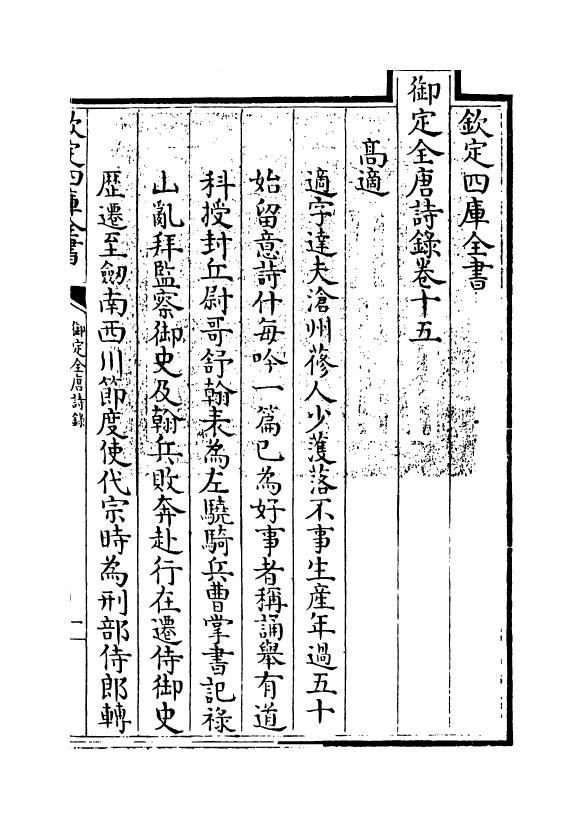 欽定四庫全書
御定全唐詩錄卷十五
高適
適字達夫滄州蓚人少濩落不事生産年過五十
始留意詩什每吟一篇已為好事者稱誦舉有道
科授封丘尉哥舒翰表為左驍騎兵曹掌書記祿
山亂拜監察御史及翰兵敗奔赴行在遷侍御史
歴遷至劒南西川節度使代宗時為刑部侍郎轉
欽定四庫全書
御定全唐詩錄